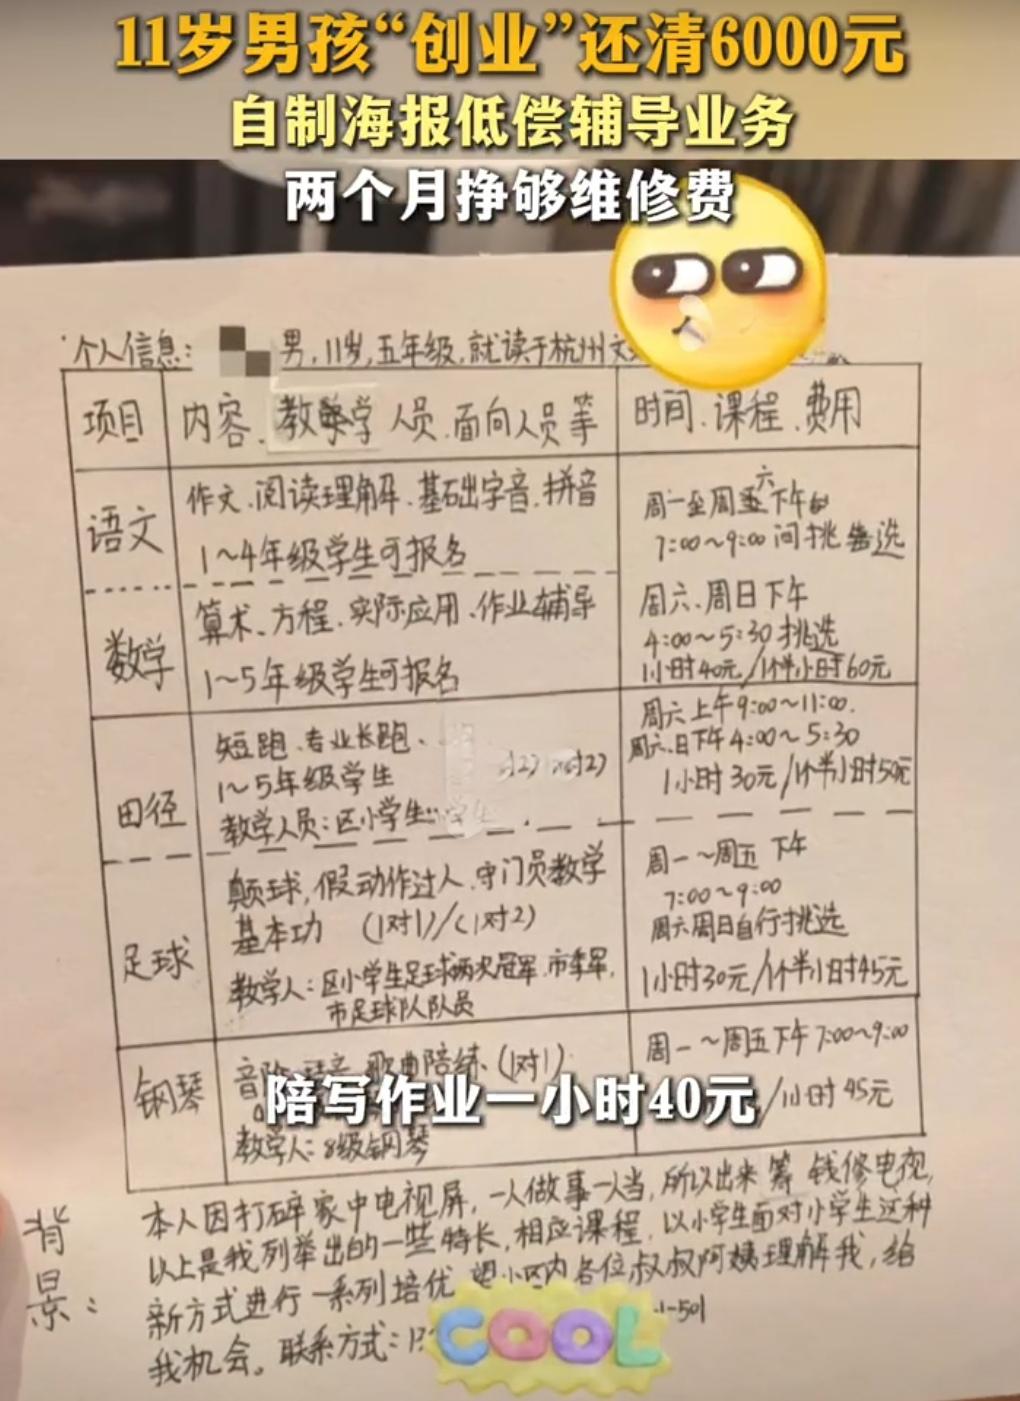 11岁男孩“创业”还清6000元
自制海报低偿辅导业务
两个月挣够维修费
个人信息: 男,11岁,五年级,就读于杭州文
项目
内容、教学人员、面向人员等
时间、课程、费用
语文
作文、阅读理解、基础字音、拼音
1~4年级学生可报名
周一至周五六下午
7:00~9:00间挑选
数学
算术、方程、实际应用、作业辅导
1~5年级学生可报名
周六、周日下午
4:00~5:30挑选
1小时40元/1个半小时60元
田径
短跑、专业长跑、
1~5年级学生
教学人员:区小学生
周六上午9:00~11:00.
周六、日下午4:00~5:30
1小时30元/1个半小时50元
足球
颠球,假动作过人、守门员教学
基本功 (1对1)/(1对2)
教学人:区小学生足球两次冠军、市季军,
市足球队队员
周一~周五 下午
7:00~9:00
周六周日自行挑选
1小时30元/1个半小时45元
钢琴
歌曲陪练、(1对1)
教学人:8级钢琴
周一~周五下午7:00~9:00
/1小时45元
陪写作业一小时40元
背景:
本人因打碎家中电视屏,一人做事一人当,所以出来筹钱修电视,
以上是我列举出的一些特长,相应课程,以小学生面对小学生这种
新方式进行一系列培优 望小区内各位叔叔阿姨理解我,给
我机会。联系方式:
COOL
-1-501